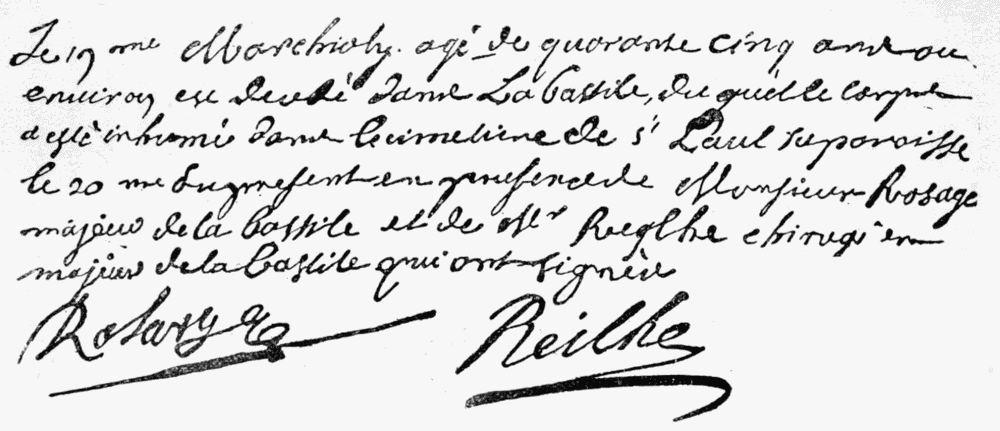 Le 19me Marchioly. agé de quarante cinq ans ou
environ est decedé dans La bastile, du quel le corps
a esté inhumé dans le cimetiere de St Paul sa paroisse
le 20 me du present en presence de Monsieur Rosage
majeur de la bastile et de Mr Reglhe chirugien
majeur de la bastile qui ont signée
Rosarges Reilhe